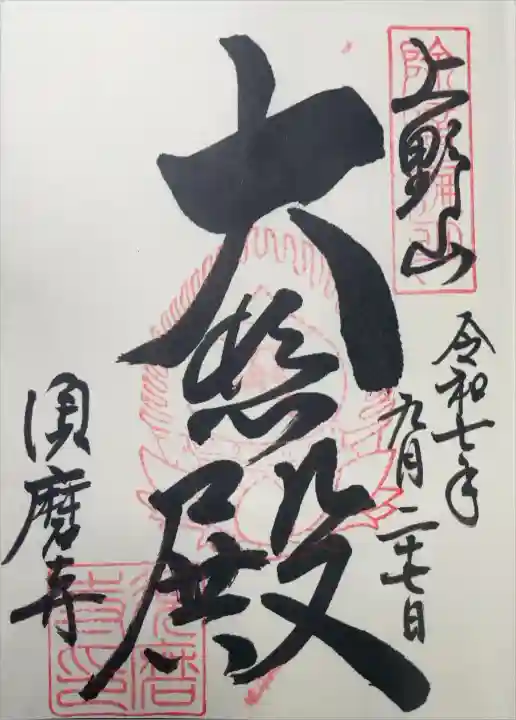 上野山
令和七年
九月二十七日
大悲殿
須磨寺
須磨寺印